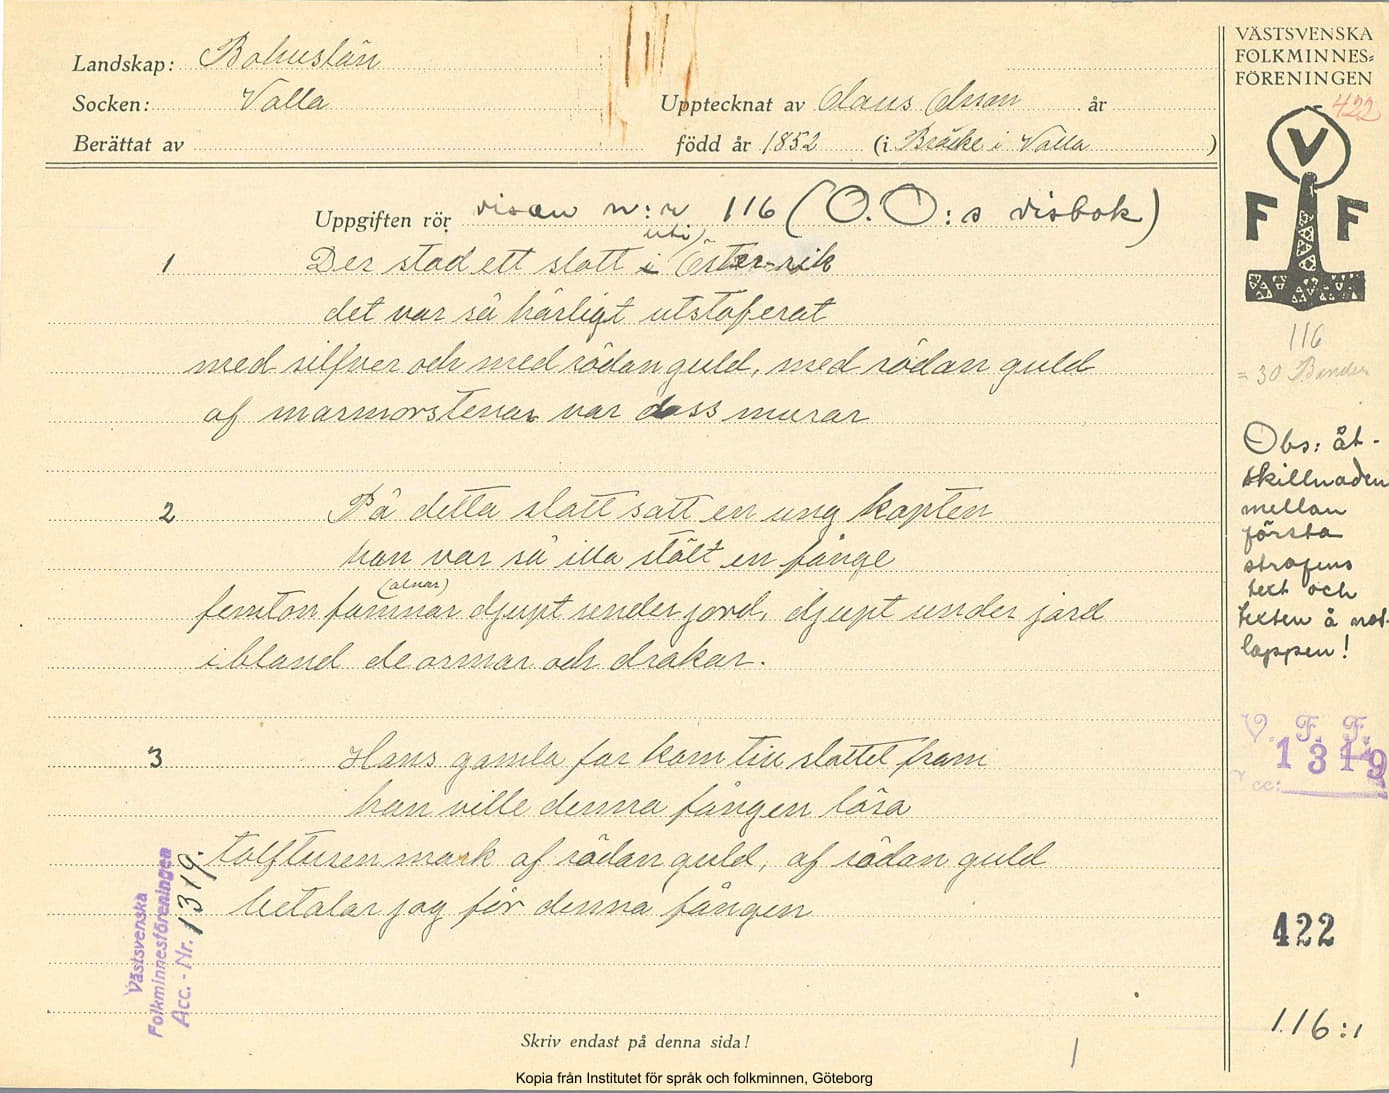 Landskap: Bohuslän
Socken: Valla
Berättat av
Upptecknat av Olaus Olsson år
född år 1852 (i Bräcke i Valla)
Uppgiften rör visan n:r 116 (O.O:s visbok)
uti)
1 Der stod ett slott i Öster-rik
det var så härligt utstoferat
med silfver och med rödan guld, med rödan guld
af marmorstenar var dess murar
2 På detta slott satt en ung kapten
han var så illa stält en fånge
(alnar)
femton famnar djupt under jord, djupt under jord
ibland de ormar och drakar.
3 Hans gamla far kom till slottet fram
han ville denna fången lösa
tolftusen mark af rödan guld, af rödan guld
betalar jag för denna fången
Västsvenska
Folkminnesföreningen
Acc.-Nr. 1319.
Skriv endast på denna sida!
1
VÄSTSVENSKA
FOLKMINNES=
FÖRENINGEN
422
V
F F
116
= 30 Banden
Obs: åt-
skillnaden
mellan
första
strofens
text och
texten å not-
lappen!
V. F. F.
1319
Acc:
422
116:1
Kopia från Institutet för språk och folkminnen, Göteborg